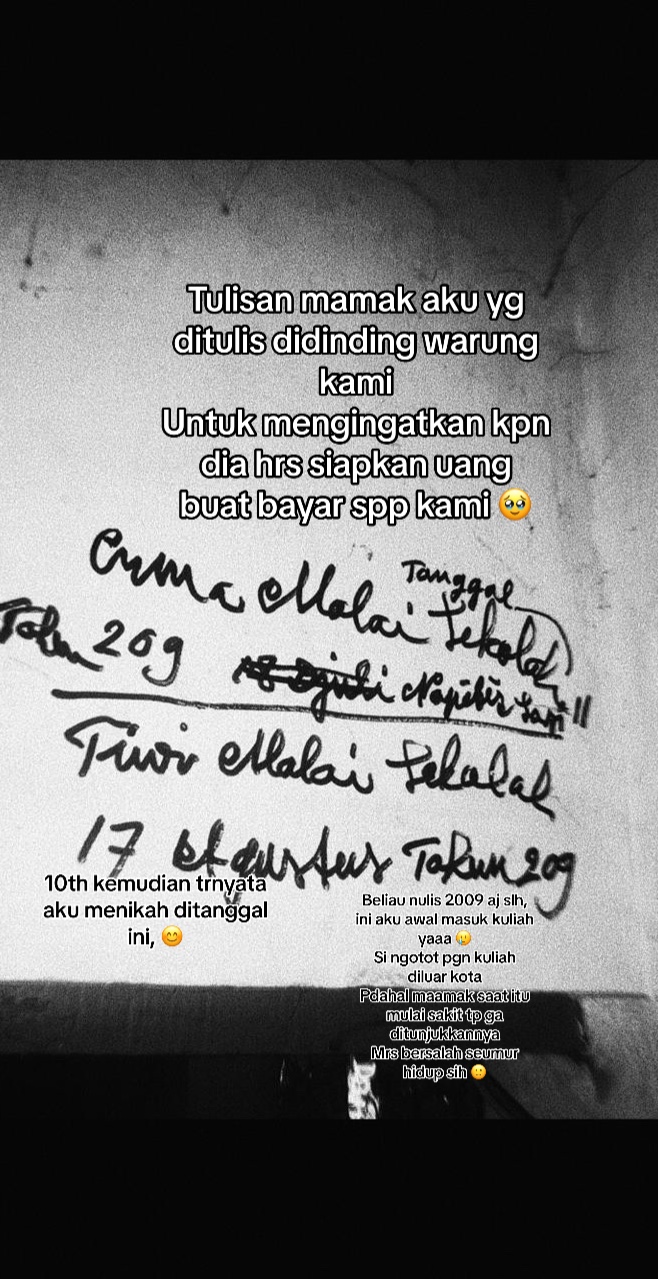 Tulisan mamak aku yg
ditulis didinding warung
kami
Untuk mengingatkan kpn
dia hrs siapkan uang
buat bayar spp kami 🥹
Tanggal
Cuma Malai Sekolah
Tahun 209
Napibir
11
Tiwi Malai Sekalah
17 Agustus Tahun 209
10th kemudian trnyata
aku menikah ditanggal
ini, 😊
Beliau nulis 2009 aj slh,
ini aku awal masuk kuliah
yaaa 🥲
Si ngotot pgn kuliah
diluar kota
Pdahal maamak saat itu
mulai sakit tp ga
ditunjukkannya
Mrs bersalah seumur
hidup sih 🙁